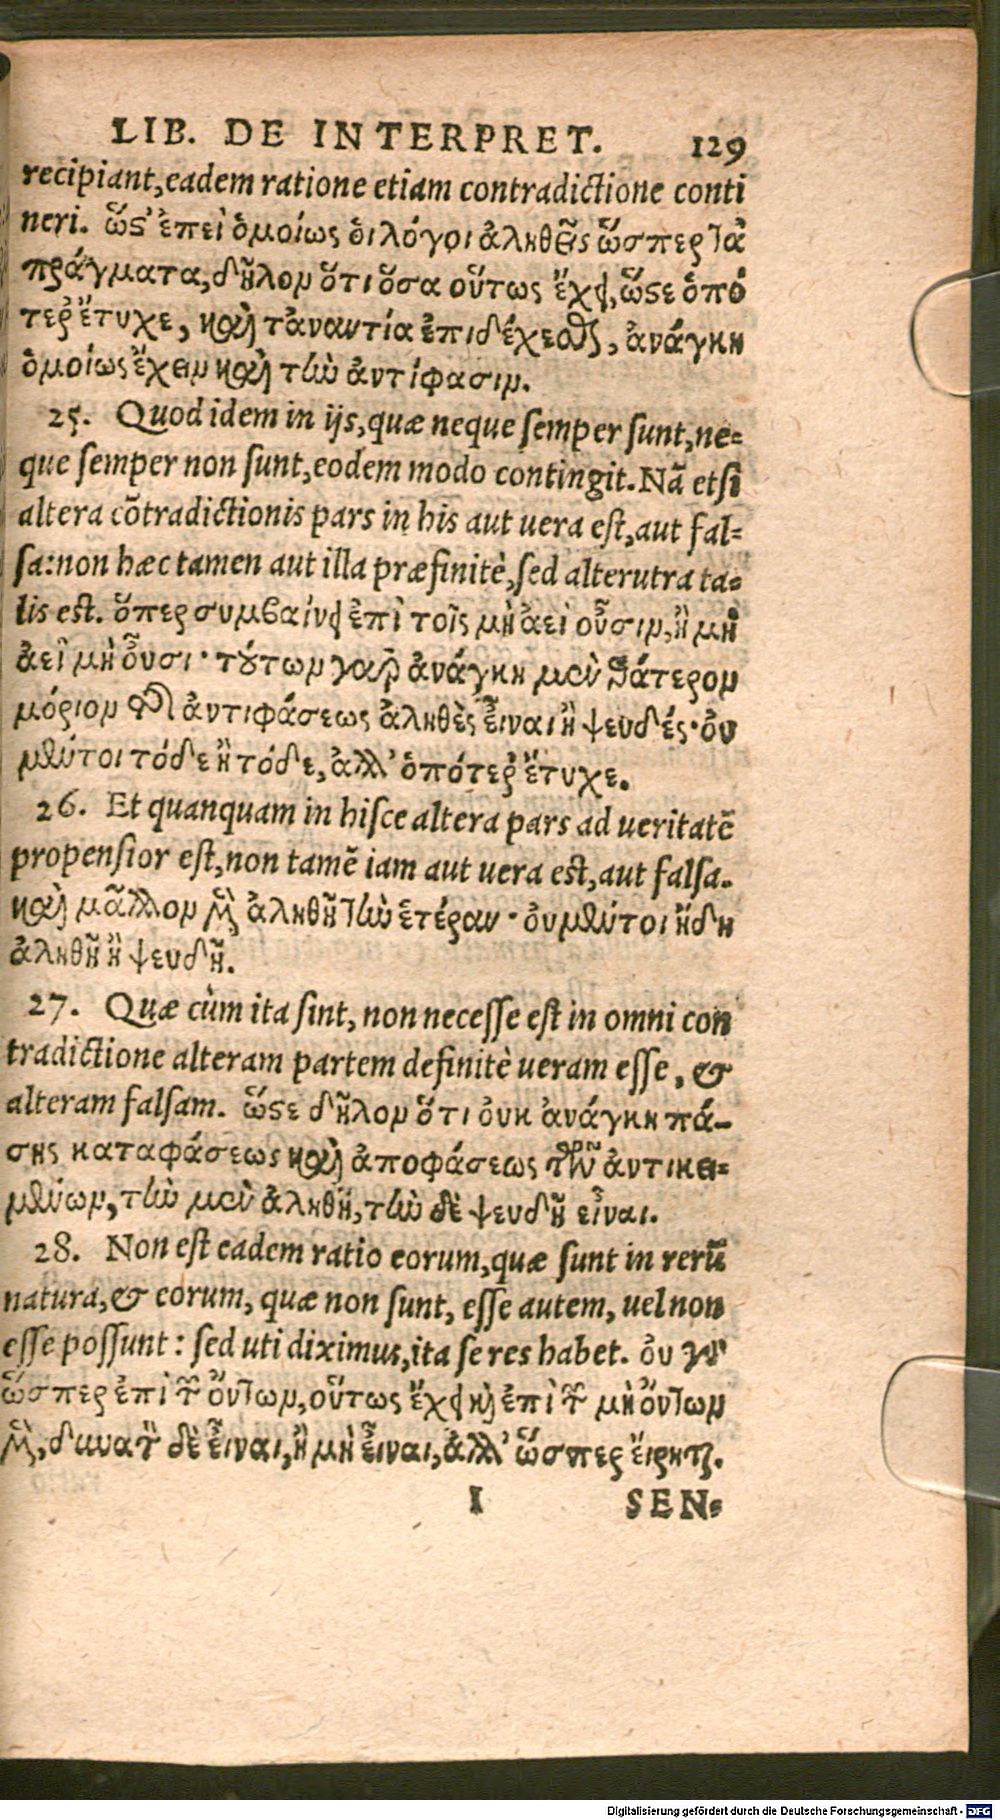 LIB. DE INTERPRET. 129
recipiant, eadem ratione etiam contradictione conti
neri. ὥστ' ἐπεὶ ὁμοίως ὁι λόγοι ἀληθεῖς ὥσπερ τὰ
πράγματα, δῆλον ὅτι ὅσα οὕτως ἔχει, ὥστε ὁπό
τερ' ἔτυχε, καὶ τἀναντία ἐπιδέχεσθαι, ἀνάγκη
ὁμοίως ἔχειν καὶ τὴν ἀντίφασιν.
25. Quod idem in ijs, quæ neque semper sunt, ne=
que semper non sunt, eodem modo contingit. Nã etsi
altera cõtradictionis pars in his aut uera est, aut fal=
sa: non hæc tamen aut illa præfinitè, sed alterutra ta=
lis est. ὅπερ συμβαίνει ἐπὶ τοῖς μὴ ἀεὶ οὖσιν, ἢ μὴ
ἀεὶ μὴ οὖσι· τούτων γὰρ ἀνάγκη μὲν θάτερον
μόριον τῆς ἀντιφάσεως ἀληθὲς εἶναι ἢ ψευδές· οὐ
μέντοι τόδε ἢ τόδε, ἀλλ' ὁπότερ' ἔτυχε.
26. Et quanquam in hisce altera pars ad ueritatẽ
propensior est, non tamẽ iam aut uera est, aut falsa.
καὶ μᾶλλον μὲν ἀληθῆ τὴν ἑτέραν· οὐ μέντοι ἤδη
ἀληθῆ ἢ ψευδῆ.
27. Quæ cùm ita sint, non necesse est in omni con
tradictione alteram partem definitè ueram esse, &
alteram falsam. ὥστε δῆλον ὅτι οὐκ ἀνάγκη πά-
σης καταφάσεως καὶ ἀποφάσεως τῶν ἀντικει=
μένων, τὴν μὲν ἀληθῆ, τὴν δὲ ψευδῆ εἶναι.
28. Non est eadem ratio eorum, quæ sunt in rerũ
natura, & eorum, quæ non sunt, esse autem, uel non
esse possunt: sed uti diximus, ita se res habet. οὐ γὰρ
ὥσπερ ἐπὶ τῶν ὄντων, οὕτως ἔχει καὶ ἐπὶ τῶν μὴ ὄντων
μὲν, δυνατῶν δὲ εἶναι, ἢ μὴ εἶναι, ἀλλ' ὥσπερ εἴρηται.
I SEN=
Digitalisierung gefördert durch die Deutsche Forschungsgemeinschaft - DFG